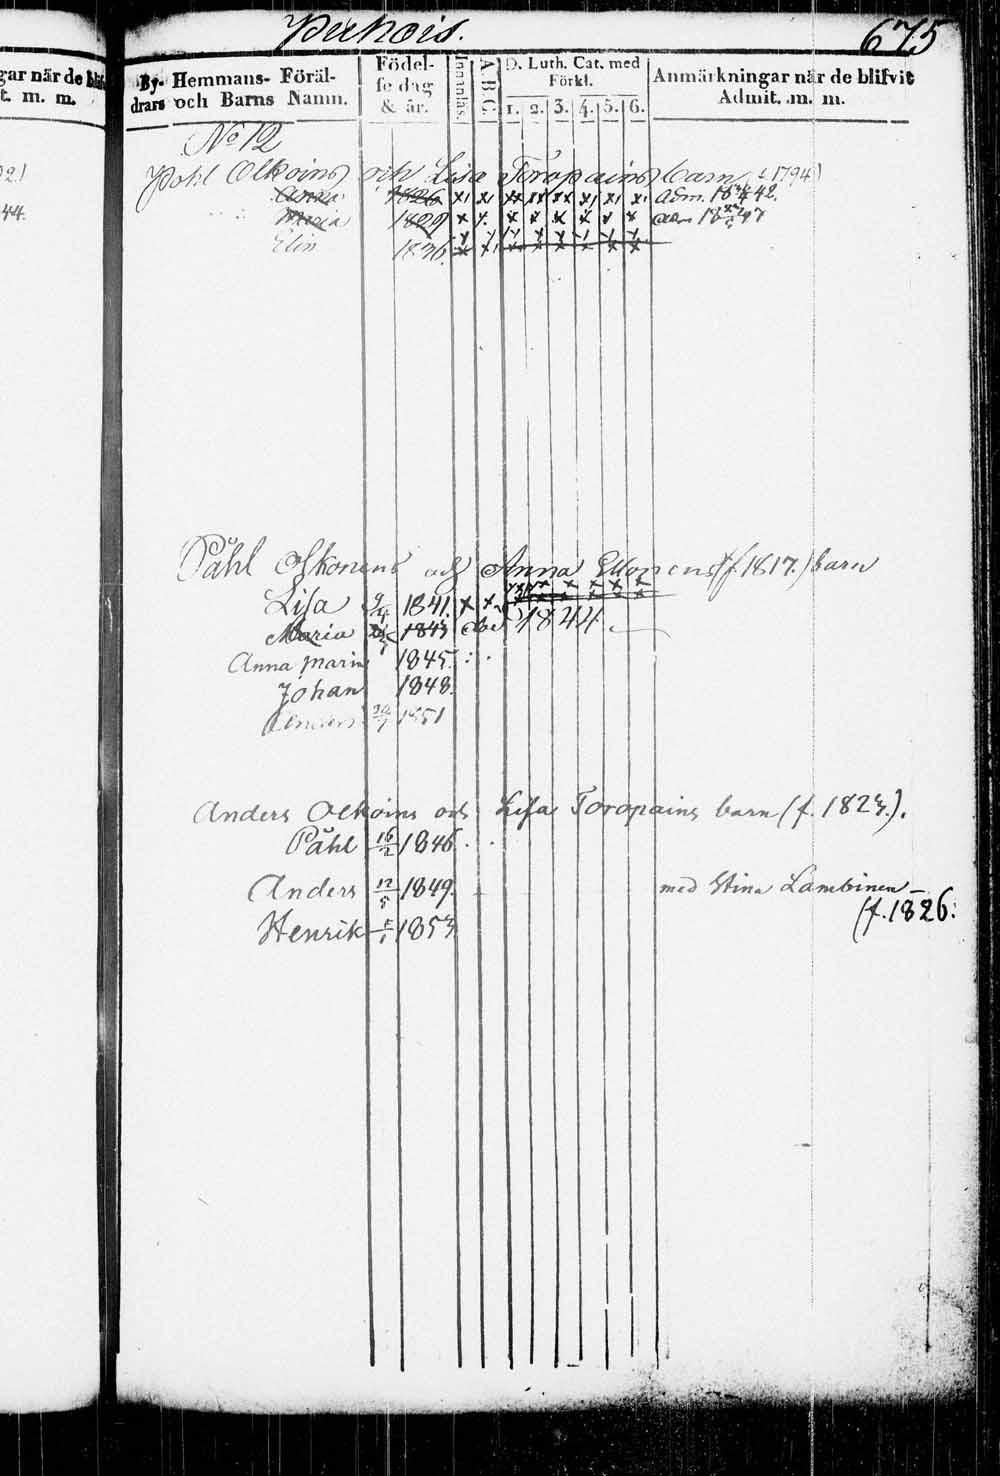 675
gar når de blif
t. m. m.
By- Hemmans- Föräl-
drars och Barns Namn.
Födel-
se dag
& år.
Innanläs.
A.B.C.
D. Luth. Cat. med
Förkl.
1. 2. 3. 4. 5. 6.
Anmärkningar når de blifvit
Admit. m. m.
44.
No 12
Påhl Olkoins och Lisa Toropains barn 1794)
Anna 1826 adm. 42.
Maria 1829 47
Elin 1836.
Påhl Olkonens och Anna (f. 1817.) barn
Lisa 9/4 1841.
Maria 1843 1844.
Anna Maria 1845.
Johan 1848.
Anders 1851
Anders Olkoins och Lisa Toropains barn (f. 1823.).
Påhl 16/2 1846.
Anders 12/5 1849. med Stina Lambinen –
(f. 1826:
Henrik 1853